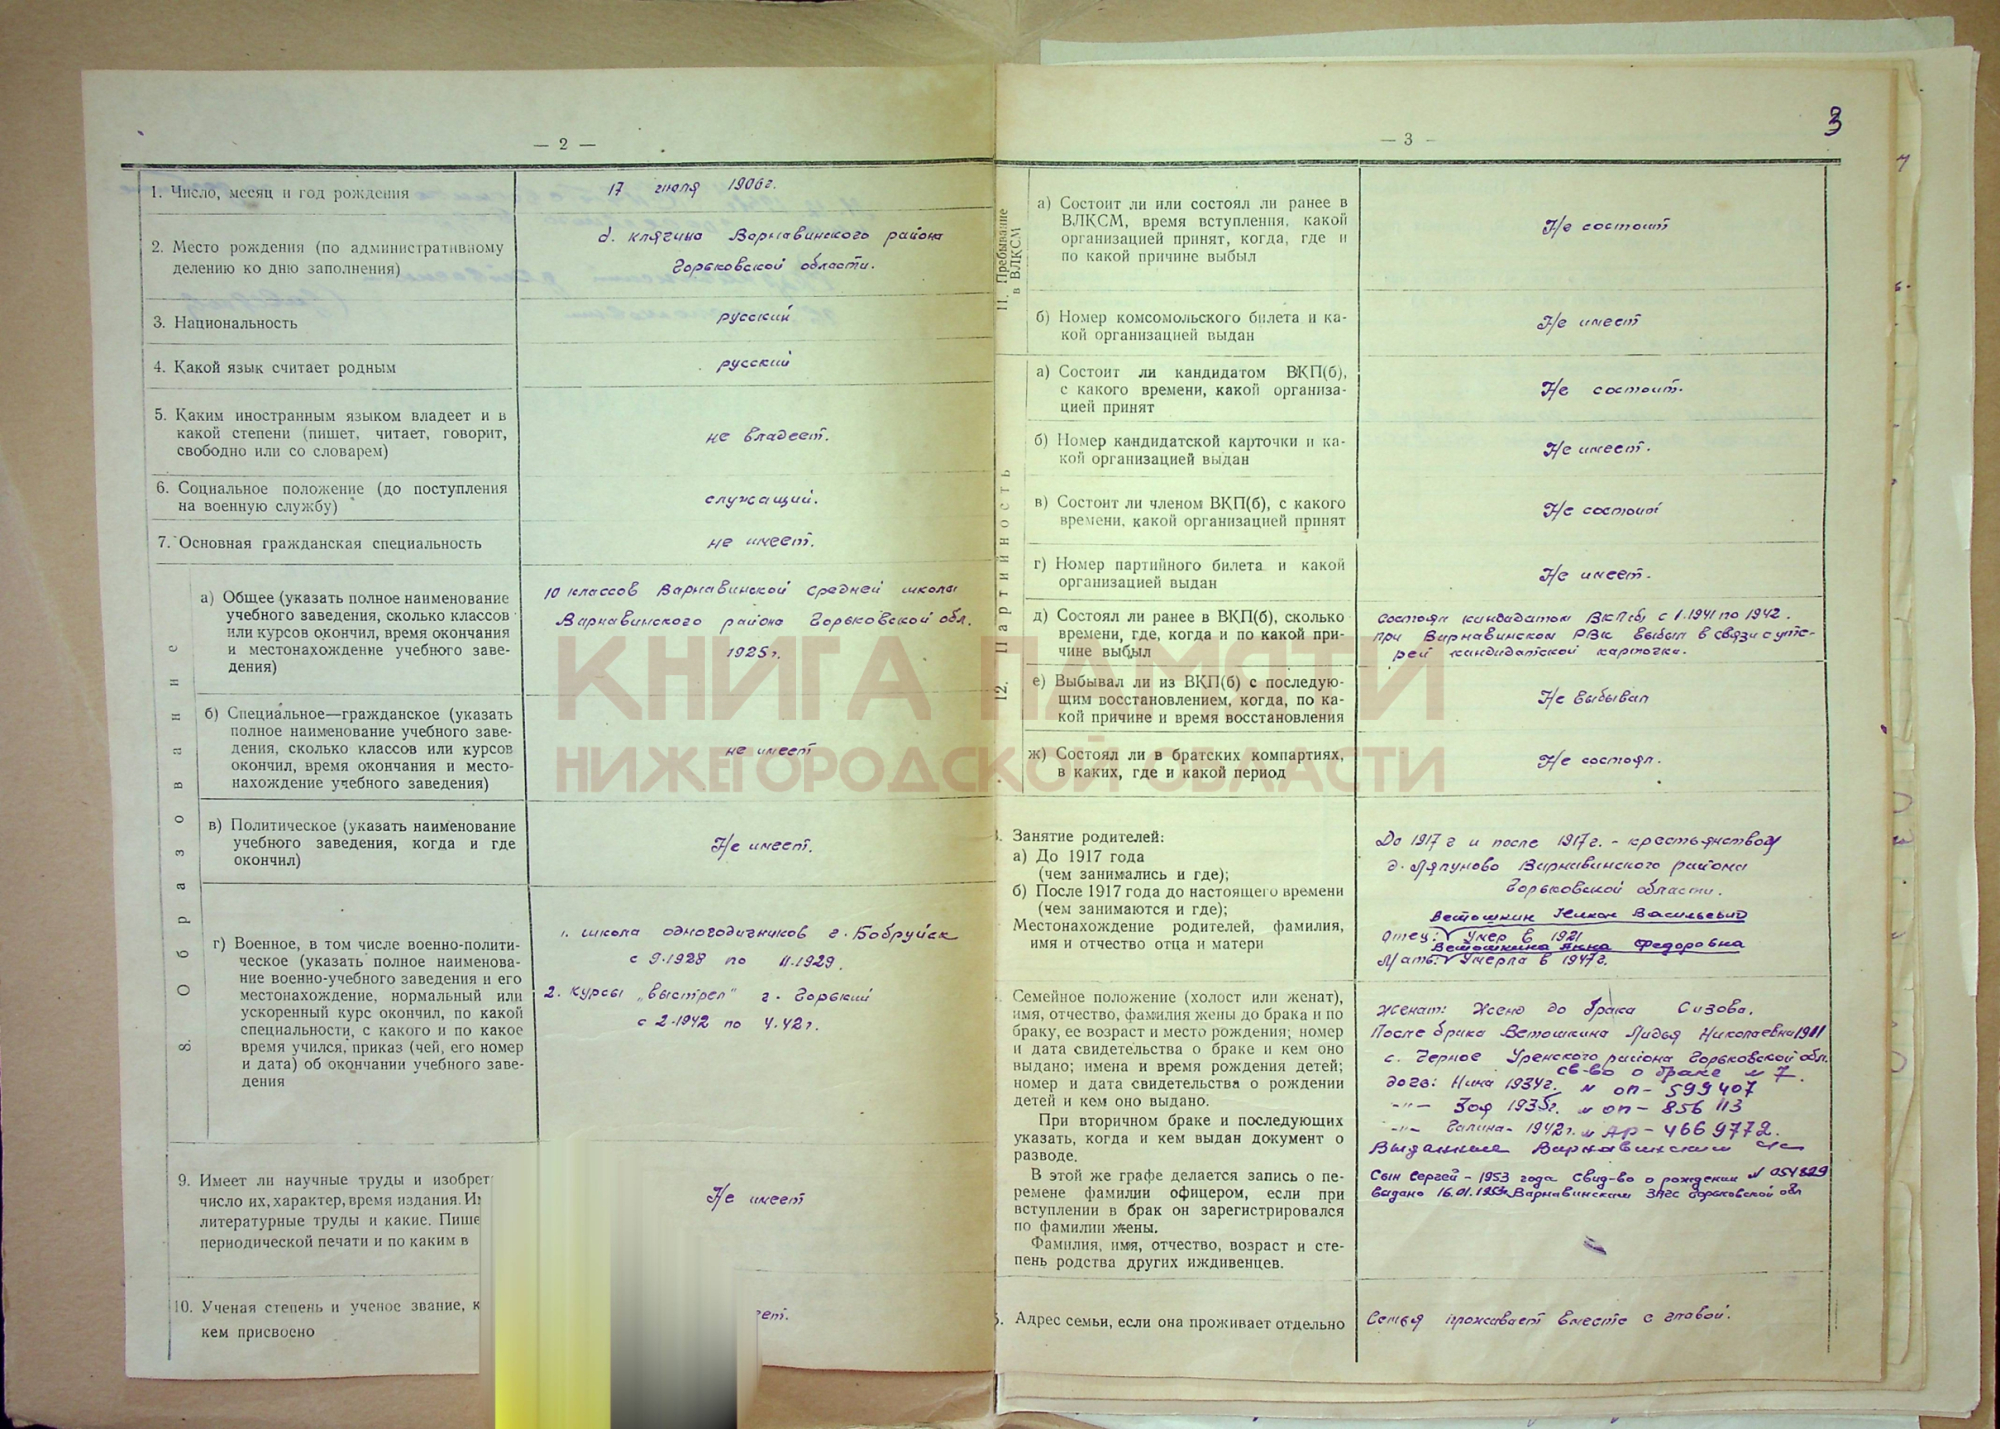 — 2 —
1. Число, месяц и год рождения
17 июля 1906г.
2. Место рождения (по административному
делению ко дню заполнения)
д. Клягино Варнавинского района
Горьковской области.
3. Национальность
русский
4. Какой язык считает родным
русский
5. Каким иностранным языком владеет и в
какой степени (пишет, читает, говорит,
свободно или со словарем)
не владеет.
6. Социальное положение (до поступления
на военную службу)
служащий.
7. Основная гражданская специальность
не имеет.
8. Образование
а) Общее (указать полное наименование
учебного заведения, сколько классов
или курсов окончил, время окончания
и местонахождение учебного заве-
дения)
10 классов Варнавинской средней школы
Варнавинского района Горьковской обл.
1925г.
б) Специальное—гражданское (указать
полное наименование учебного заве-
дения, сколько классов или курсов
окончил, время окончания и место-
нахождение учебного заведения)
не имеет
в) Политическое (указать наименование
учебного заведения, когда и где
окончил)
Не имеет.
г) Военное, в том числе военно-полити-
ческое (указать полное наименова-
ние военно-учебного заведения и его
местонахождение, нормальный или
ускоренный курс окончил, по какой
специальности, с какого и по какое
время учился, приказ (чей, его номер
и дата) об окончании учебного заве-
дения
1. школа одногодичников г. Бобруйск
с 9.1928 по 11.1929.
2. Курсы „Выстрел" г. Горький
с 2.1942 по 4.42г.
9. Имеет ли научные труды и изобрет
число их, характер, время издания. И
литературные труды и какие. Пише
периодической печати и по каким в
Не имеет
10. Ученая степень и ученое звание, к
кем присвоено
еет.
— 3 -
3
11. Пребывание
в ВЛКСМ
а) Состоит ли или состоял ли ранее в
ВЛКСМ, время вступления, какой
организацией принят, когда, где и
по какой причине выбыл
Не состоит
б) Номер комсомольского билета и ка-
кой организацией выдан
Не имеет
12. Партийность
а) Состоит ли кандидатом ВКП(б),
с какого времени, какой организа-
цией принят
Не состоит.
б) Номер кандидатской карточки и ка-
кой организацией выдан
Не имеет.
в) Состоит ли членом ВКП(б), с какого
времени, какой организацией принят
Не состоит
г) Номер партийного билета и какой
организацией выдан
Не имеет.
д) Состоял ли ранее в ВКП(б), сколько
времени, где, когда и по какой при-
чине выбыл
Состоял кандидатом ВКП(б) с 1.1941 по 1942.
при Варнавинском РВК выбыл в связи с уте-
рей кандидатской карточки.
е) Выбывал ли из ВКП(б) с последую-
щим восстановлением, когда, по ка-
кой причине и время восстановления
Не выбывал
ж) Состоял ли в братских компартиях,
в каких, где и какой период
Не состоял.
Занятие родителей:
а) До 1917 года
(чем занимались и где);
б) После 1917 года до настоящего времени
(чем занимаются и где);
Местонахождение родителей, фамилия,
имя и отчество отца и матери
До 1917 г и после 1917г. - крестьянство
д. Ляпуново Варнавинского района
Горьковской области.
Ветошкин Никон Васильевич
Отец: V умер в 1921
Ветошкина Анна Федоровна
Мать: V Умерла в 1947г.
Семейное положение (холост или женат),
имя, отчество, фамилия жены до брака и по
браку, ее возраст и место рождения; номер
и дата свидетельства о браке и кем оно
выдано; имена и время рождения детей;
номер и дата свидетельства о рождении
детей и кем оно выдано.
При вторичном браке и последующих
указать, когда и кем выдан документ о
разводе.
В этой же графе делается запись о пе-
ремене фамилии офицером, если при
вступлении в брак он зарегистрировался
по фамилии жены.
Фамилия, имя, отчество, возраст и сте-
пень родства других иждивенцев.
Женат: Жена до брака Сизова.
После брака Ветошкина Лидья Николаевна 1911
с. Черное Уренского района Горьковской обл.
св-во о браке № 7.
дочь: Нина 1934г. № ОП - 599407
-"- Зоя 1935г. № ОП - 856113
-"- Галина - 1942г. № АР - 4669772.
Выданные Варнавинским с/с
Сын Сергей - 1953 года свид-во о рождении № 054829
выдано 16.01.1953г. Варнавинским ЗАГС Горьковской обл
Адрес семьи, если она проживает отдельно
Семья проживает вместе с главой.
КНИГА ПАМЯТИ
НИЖЕГОРОДСКОЙ ОБЛАСТИ